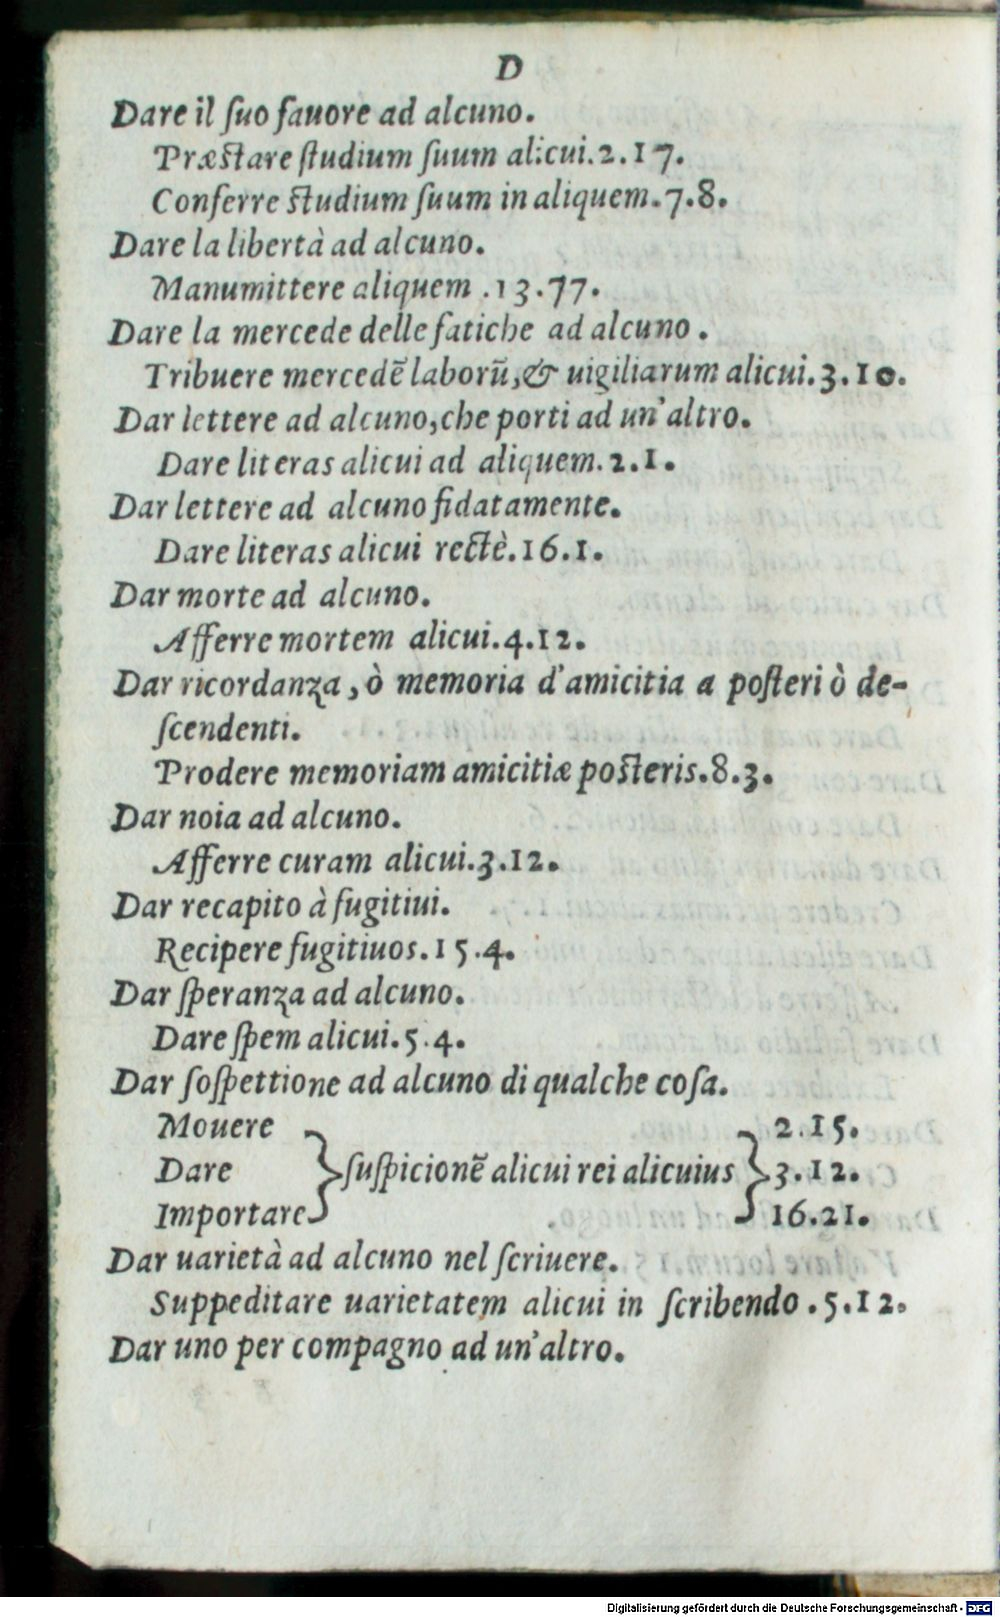 D
Dare il ſuo fauore ad alcuno.
Præſtare ſtudium ſuum alicui.2.17.
Conferre ſtudium ſuum in aliquem.7.8.
Dare la libertà ad alcuno.
Manumittere aliquem .13.77.
Dare la mercede delle fatiche ad alcuno .
Tribuere mercedē laborū,& uigiliarum alicui.3.10.
Dar lettere ad alcuno,che porti ad un'altro.
Dare literas alicui ad aliquem.2.1.
Dar lettere ad alcuno fidatamente.
Dare literas alicui rectè.16.1.
Dar morte ad alcuno.
Afferre mortem alicui.4.12.
Dar ricordanza , ò memoria d'amicitia a poſteri ò de-
ſcendenti.
Prodere memoriam amicitiæ poſteris.8.3.
Dar noia ad alcuno.
Afferre curam alicui.3.12.
Dar recapito à fugitiui.
Recipere fugitiuos.15.4.
Dar ſperanza ad alcuno.
Dare ſpem alicui.5.4.
Dar ſoſpettione ad alcuno di qualche coſa.
Mouere 2.15.
Dare } ſuſpicionē alicui rei alicuius } 3.12.
Importare 16.21.
Dar uarietà ad alcuno nel ſcriuere.
Suppeditare uarietatem alicui in ſcribendo .5.12.
Dar uno per compagno ad un'altro.
Digitalisierung gefördert durch die Deutsche Forschungsgemeinschaft - DFG